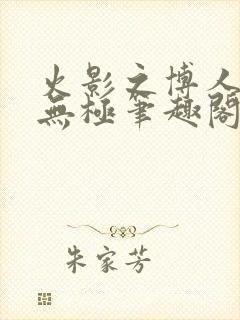 火影之博人
無極筆趣閣
朱家芳